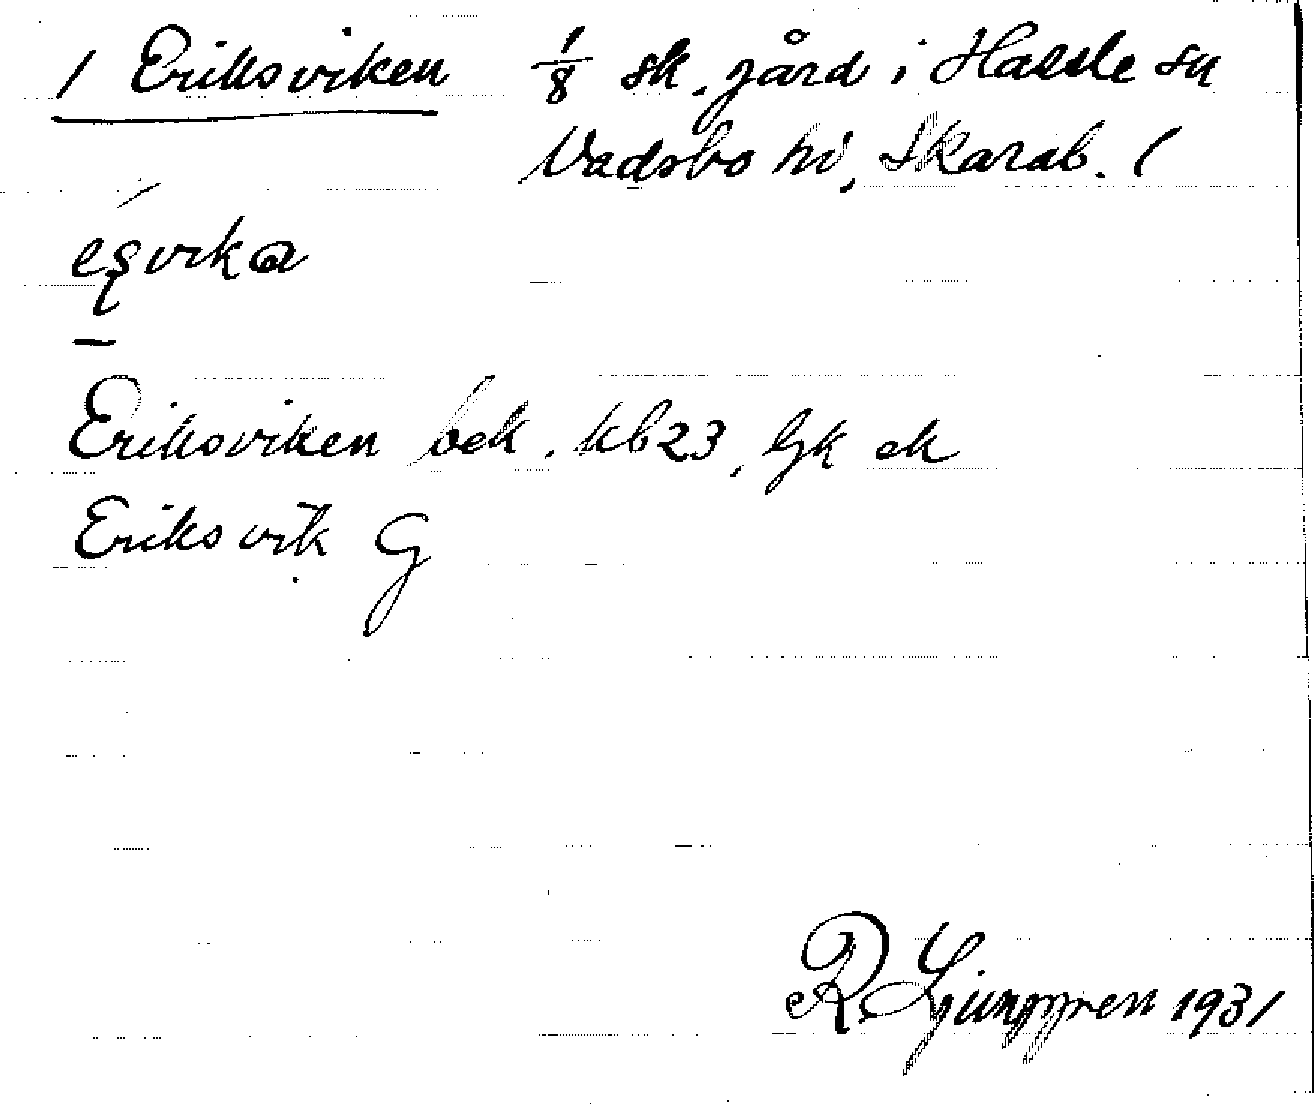 / Eriksviken 1/8 sk. gård i Hassle sn
Vadsbo hd, Skarab. l
Eriksviken bek. kb23, Gk ek
Eriksvik G
R. Ljunggren 1931